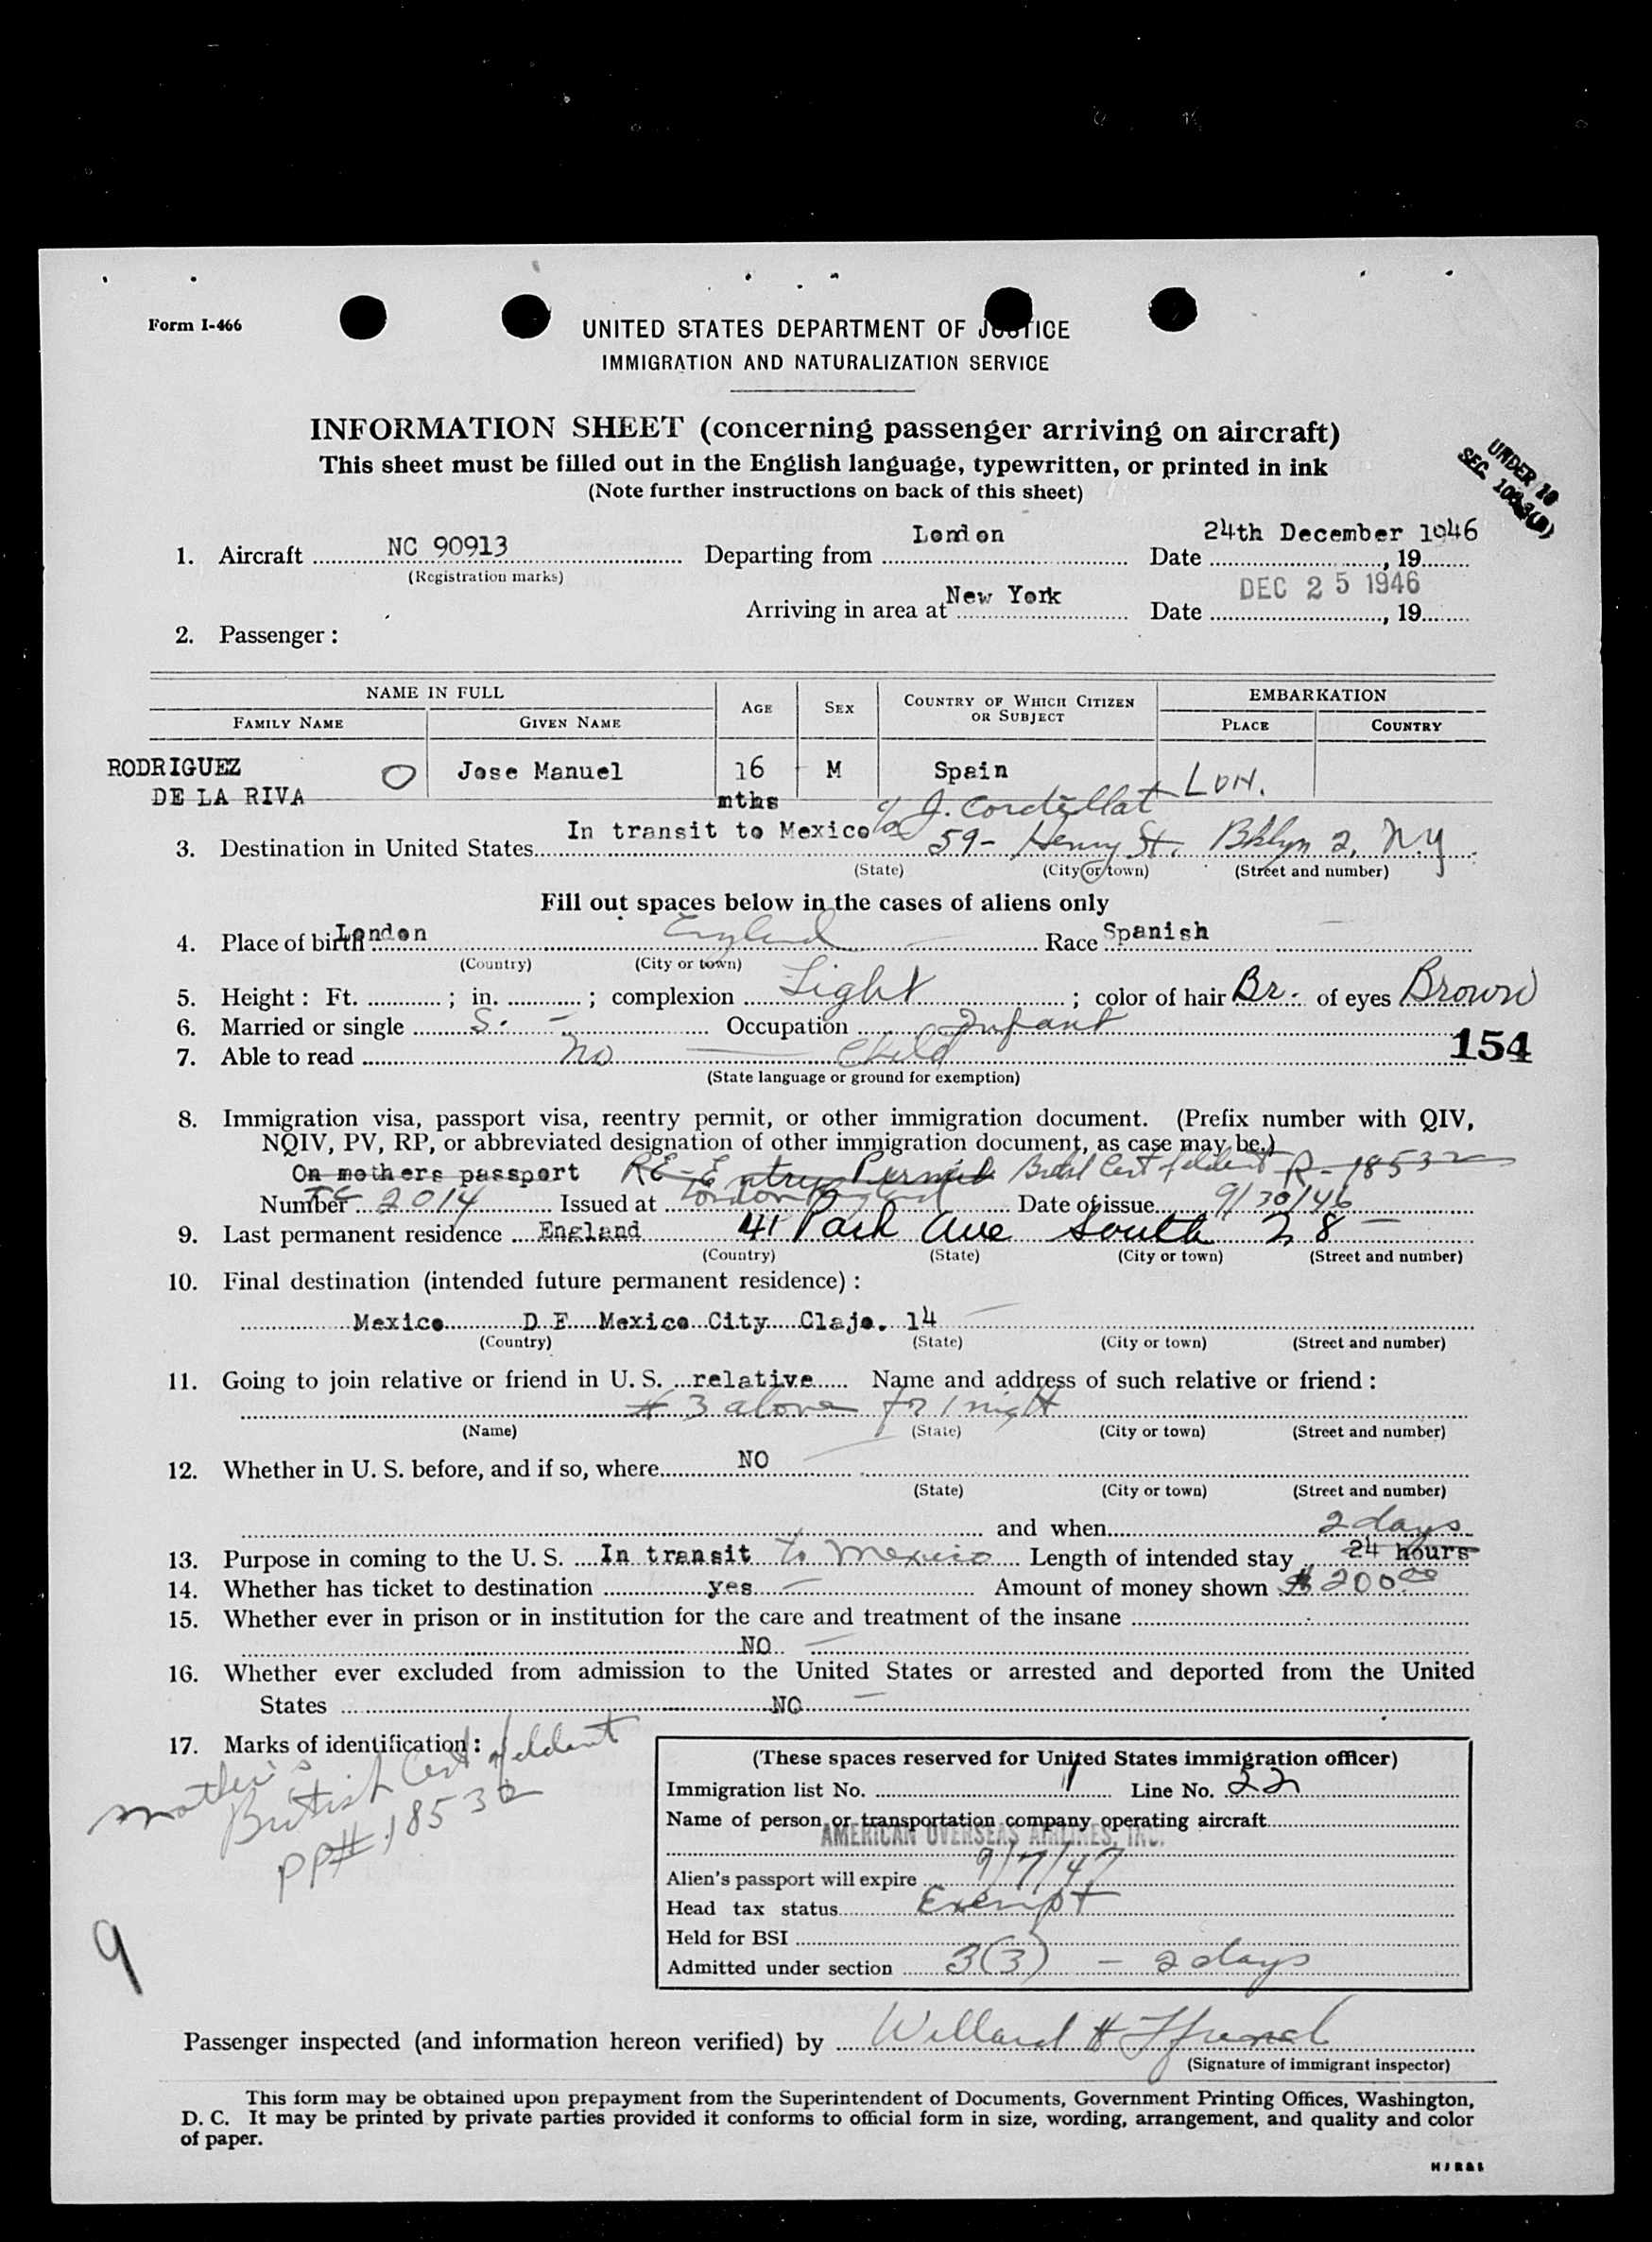 Form I-466
UNITED STATES DEPARTMENT OF JUSTICE
IMMIGRATION AND NATURALIZATION SERVICE
INFORMATION SHEET (concerning passenger arriving on aircraft)
This sheet must be filled out in the English language, typewritten, or printed in ink
(Note further instructions on back of this sheet)
UNDER 10
SEC.
1. Aircraft NC 90913 Departing from London Date 24th December 1946, 19
(Registration marks)
Arriving in area at New York Date DEC 25 1946, 19
2. Passenger:
NAME IN FULL AGE SEX COUNTRY OF WHICH CITIZEN OR SUBJECT EMBARKATION
FAMILY NAME GIVEN NAME PLACE COUNTRY
RODRIGUEZ DE LA RIVA O Jose Manuel 16 mths M Spain LON.
c/o J. Cordellat
3. Destination in United States In transit to Mexico 59- Henry St. Bklyn 2, N.Y.
(State) (City or town) (Street and number)
Fill out spaces below in the cases of aliens only
4. Place of birth London England Race Spanish
(Country) (City or town)
5. Height: Ft. ; in. ; complexion Light ; color of hair Br. of eyes Brown
6. Married or single S. Occupation Infant
7. Able to read No Child 154
(State language or ground for exemption)
8. Immigration visa, passport visa, reentry permit, or other immigration document. (Prefix number with QIV,
NQIV, PV, RP, or abbreviated designation of other immigration document, as case may be.)
On mothers passport RE-Entry Permit Cert of Ident R-18532
Number 2014 Issued at London England Date of issue 9/30/46
9. Last permanent residence England 41 Park Ave South 28
(Country) (State) (City or town) (Street and number)
10. Final destination (intended future permanent residence):
Mexico D F Mexico City Clajo. 14
(Country) (State) (City or town) (Street and number)
11. Going to join relative or friend in U. S. relative Name and address of such relative or friend:
# 3 above for 1 night
(Name) (State) (City or town) (Street and number)
12. Whether in U. S. before, and if so, where NO
(State) (City or town) (Street and number)
and when 2 days
13. Purpose in coming to the U. S. In transit to Mexico Length of intended stay 24 hours
14. Whether has ticket to destination yes Amount of money shown $200.00
15. Whether ever in prison or in institution for the care and treatment of the insane
NO
16. Whether ever excluded from admission to the United States or arrested and deported from the United
States NO
17. Marks of identification:
Mother's
British Cert of Ident
PP# 18532
9
(These spaces reserved for United States immigration officer)
Immigration list No. 1 Line No. 22
Name of person or transportation company operating aircraft
AMERICAN OVERSEAS AIRLINES, INC.
Alien's passport will expire 9/7/47
Head tax status Exempt
Held for BSI
Admitted under section 3(3) - 2 days
Passenger inspected (and information hereon verified) by Willard H
(Signature of immigrant inspector)
This form may be obtained upon prepayment from the Superintendent of Documents, Government Printing Offices, Washington,
D. C. It may be printed by private parties provided it conforms to official form in size, wording, arrangement, and quality and color
of paper.